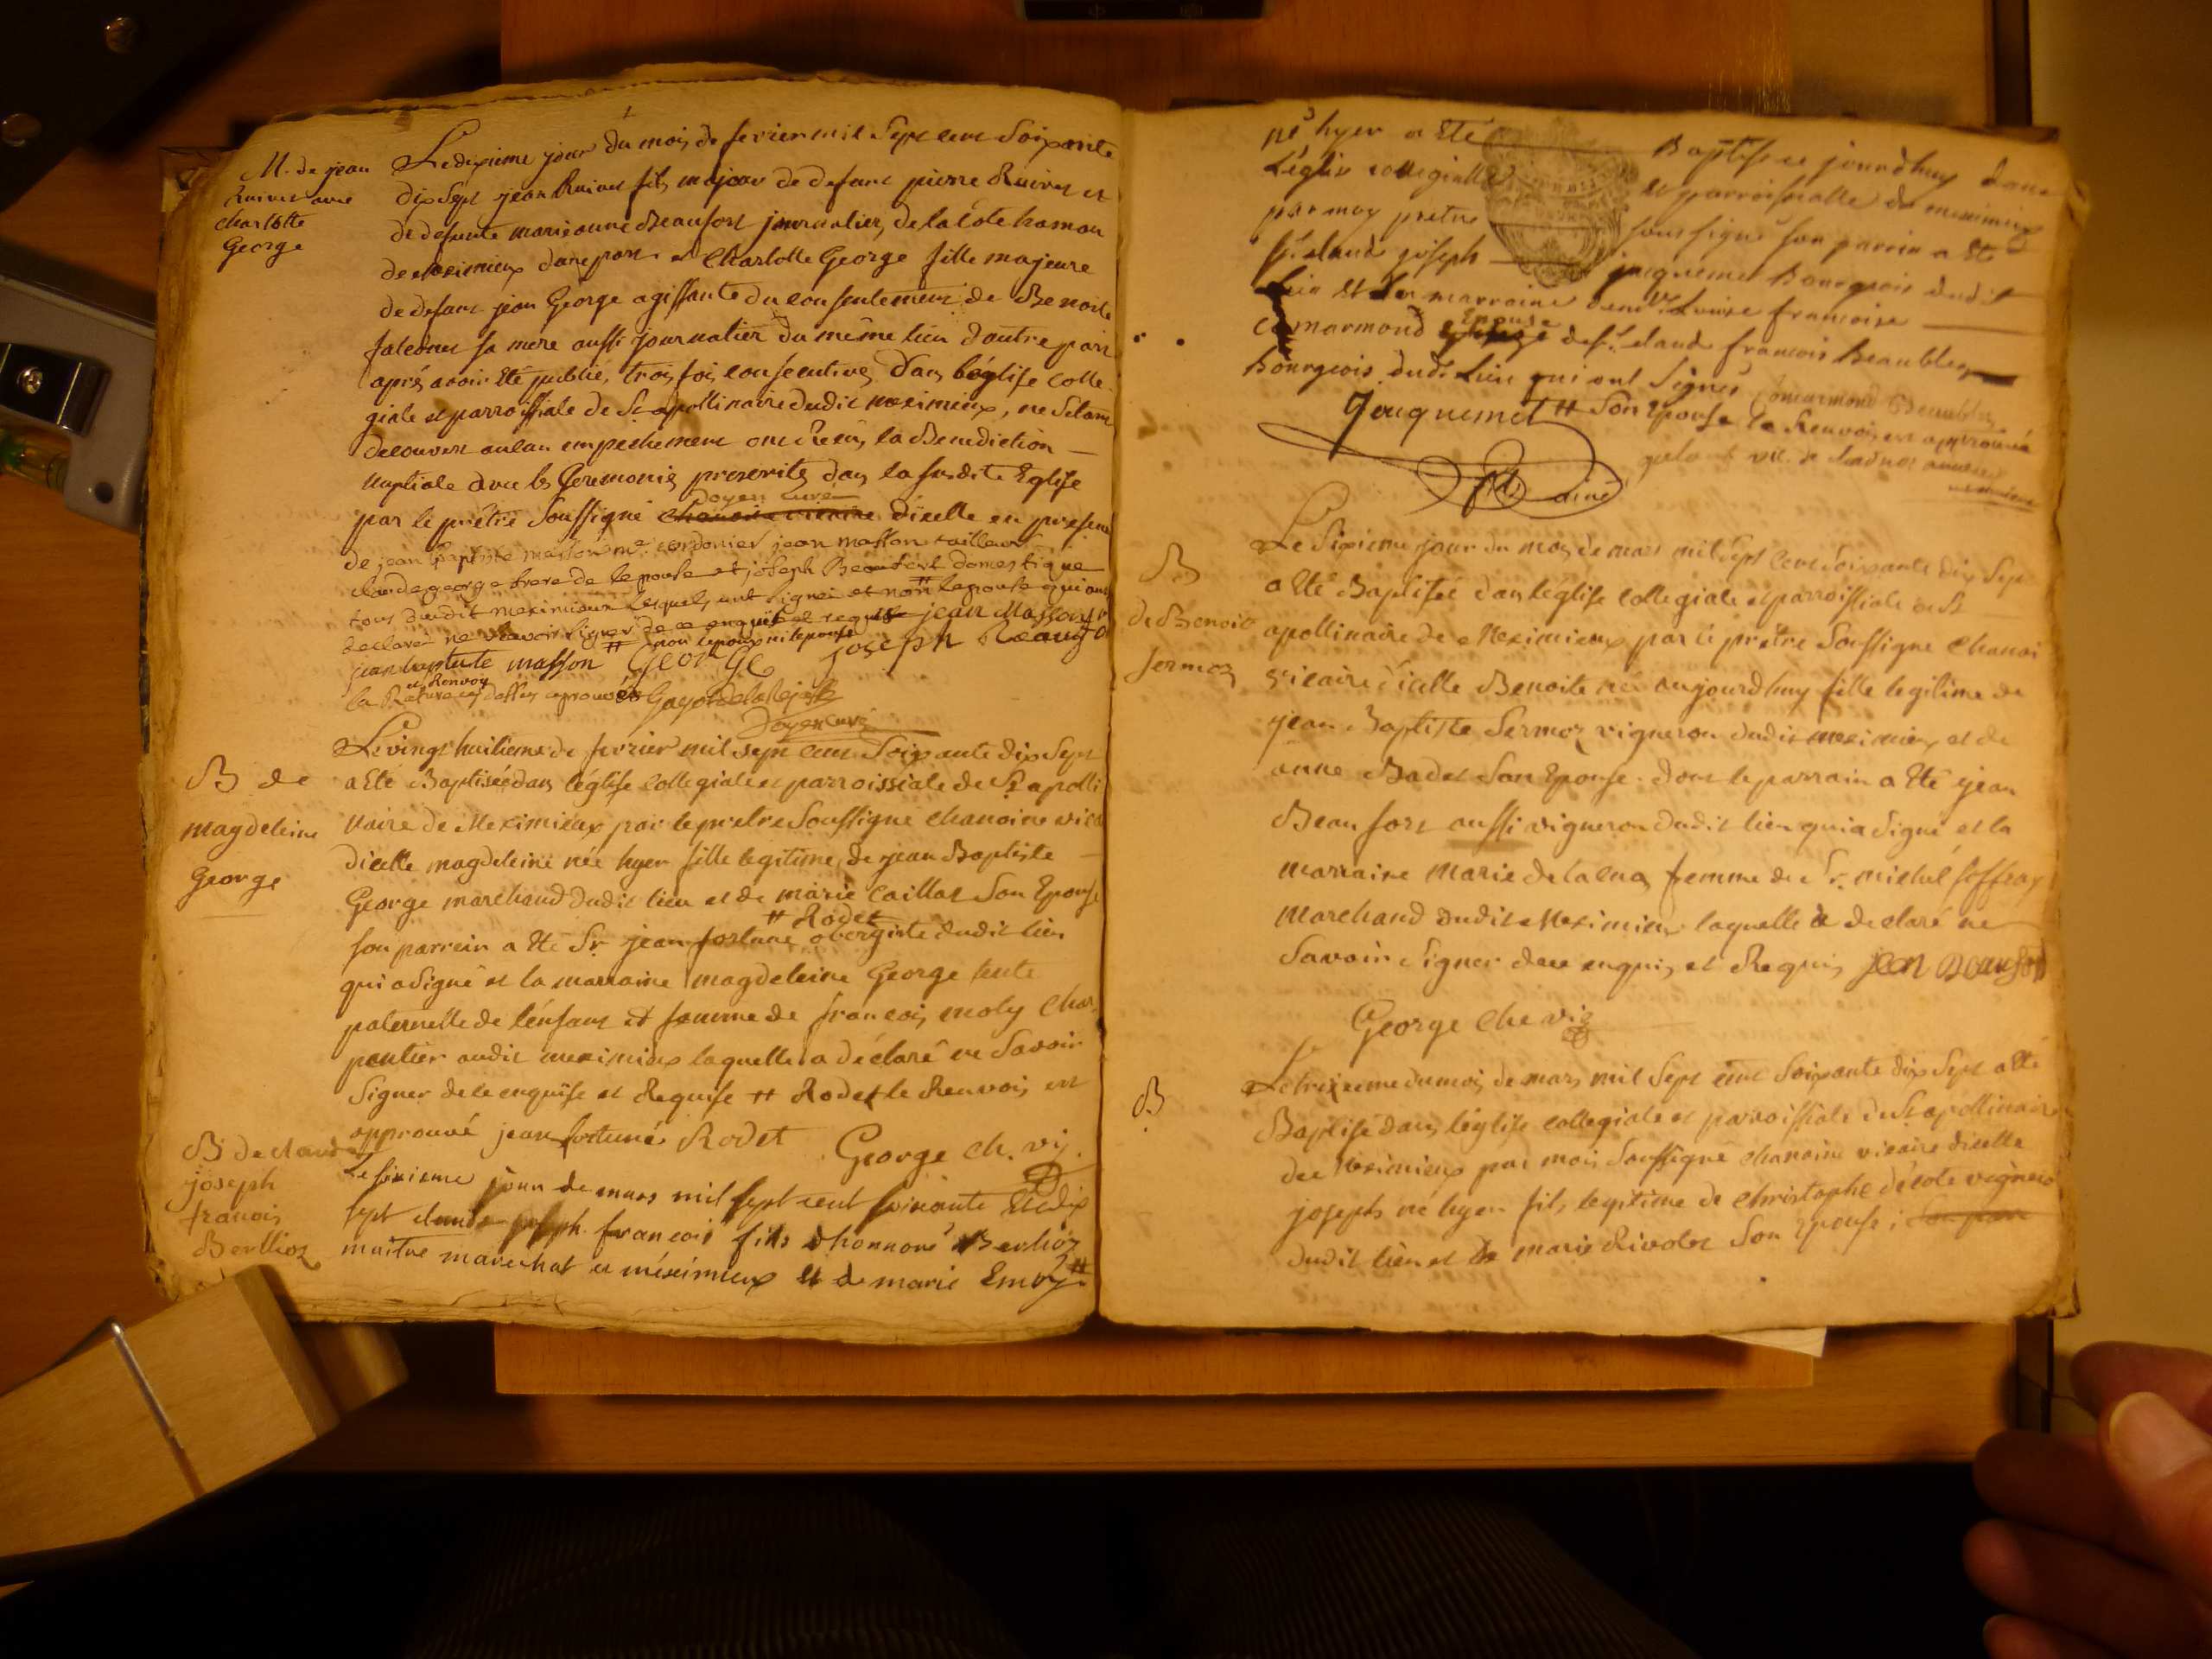 M. de jean
Ruivet avec
charlotte
George
Le dixieme jour du mois de fevrier mil Sept cent Soixante
dix Sept jean Ruivet fils majeur de defunt pierre Ruivet et
de defunte marieanne Beaufort journalier, de la Côte hamau
de Meximieux d'une part et Charlotte George fille majeure
de defunt jean George agissante du consentement de Benoite
falconet sa mere aussi journalier du même lieu d'autre part
aprés avoir Eté publié, trois fois consécutives dans l'église colle
giale et parroissiale de St apollinaire dudit meximieux, ne S'etant
decouvert aucun empechement ont Recus la Benediction
Nuptiale avec les Ceremonies prescrites dans la susdite Eglise
Doyen curé
par le prêtre Soussigné chanoine vicaire d'icelle en presence
de jean baptiste masson me cordonier jean masson tailleur
claude george frere de lepouse et joseph Beaufort domestique
tous dudit meximieux lesquels ont signés et non # lepouse qui ont
declaré ne scavoir signer de ce enquis et requis jean Masson
jean baptiste masson # non lepoux ni lepouse GEORGE joseph Beaufor
et Renvoy
la Rature cy dessus aprouvés Gayot delaRejasse
Doyen curé
B de
magdeleine
George
Le vingt huitieme de fevrier mil sept cent Soixante dix Sept
a Eté Baptisée dans l'église collegiale et parroissiale de St apolli
Naire de Meximieux par le pretre Soussigné chanoine vica
d'icelle magdeleine née hyer fille legitime de jean Baptiste
George marchand dudit lieu et de marie Caillat Son Epouse
# Rodet
son parrein a Eté Sr jean fortuné obergiste dudit lieu
qui a Signé et la marraine magdeleine George tente
paternelle de l'enfant et femme de françois moly Char
pentier audit meximieux laquelle a déclaré ne Savoir
Signer de ce enquise et Requise # Rodet le Renvois est
approuvé jean fortuné Rodet George ch. vic.
B de claude
joseph
francois
Berllioz
Le sixieme jour de mars mil sept cent soixante et dix
sept claude joseph francois fils d'honnoré Berlioz
maitre marechal a méximieux et de marie Emoz #
né hyer a Eté Baptisé ce jourdhuy dans
L'églize collegialle et parroissialle de meximieux
par moy pretre soussigné son parrein a Eté
sr. claude joseph jacquemet Bourgeois dudit
Lieu et Sa marraine demlle Louise francoise
Epouse
Comarmond de sr. claude francois Beaublez
Bourgeois dudt. Lieu qui ont Signés Comarmond Beaublez
Jacquemet # Son Epouse le Renvois est approuvé
ainé
B
de Benoit
Sermoz
Le Sixieme jour du mois de mars mil Sept Cent Soixante dix Sep
a Eté Baptisée dans l'église collegiale et parroissiale de St
apollinaire de Meximieux par le prêtre Soussigné Chanoi
vicaire d'icelle Benoite née aujourdhuy fille legitime de
jean Baptiste Sermoz vigneron dudit meximieux et de
anne Badet Son Epouse. dont le parrain a Eté jean
Beaufort aussi vigneron dudit lieu qui a Signé et la
marraine Marie de lacua femme de Sr. michel soffray
Marchand dudit Meximieux laquelle a declaré ne
Savoir Signer de ce enquis et Requis jean Beaufort
George che vic
B
Le treizieme du mois de mars mil Sept cent Soixante dix Sept a Eté
Baptisé dans l'église collegiale et parroissiale de St apollinaire
de Meximieux par mois Soussigné chanoine vicaire dicelle
joseph né hyer fils legitime de Christophe décote vigneron
dudit lieu et de marie Rivolet Son Epouse; Son parr